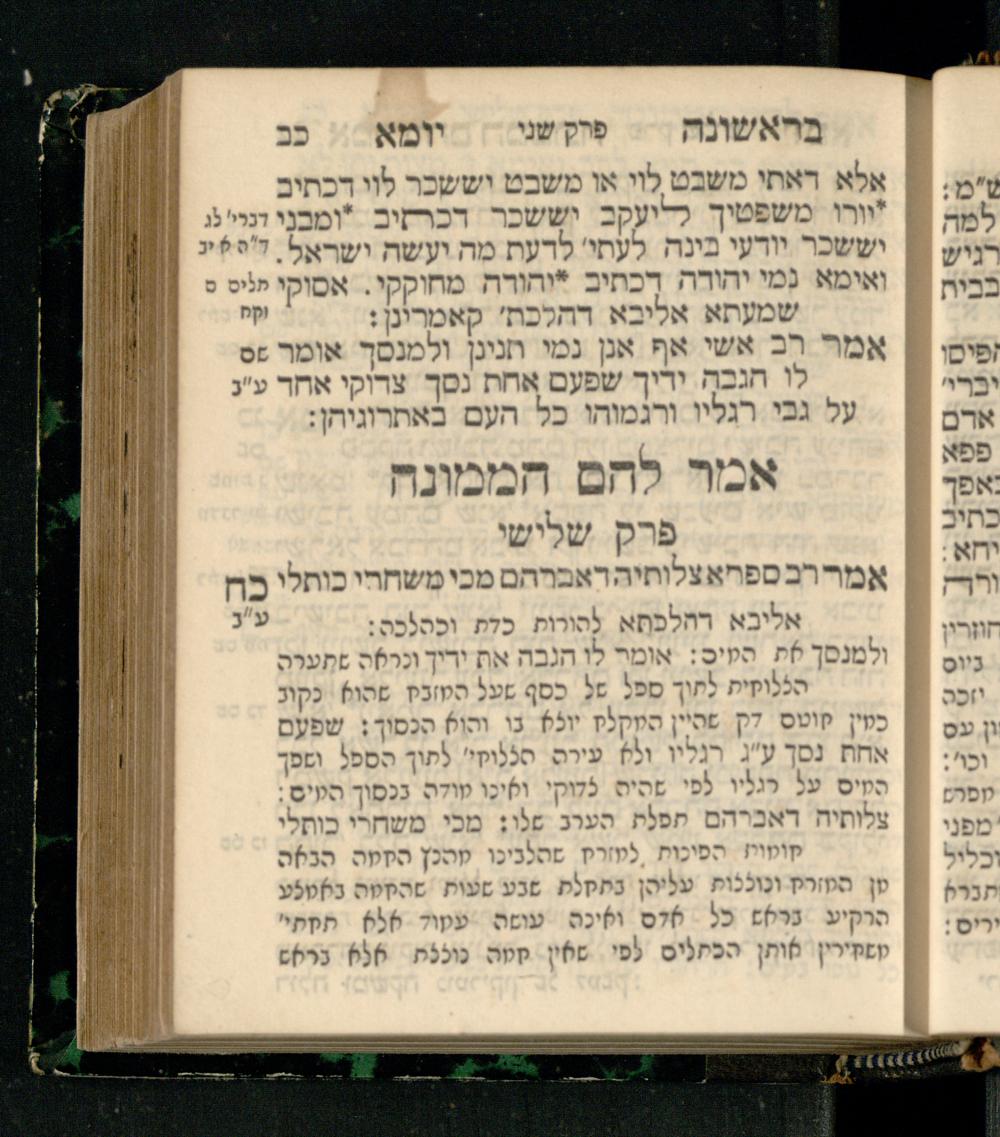 בראשונה פרק שני יומא כב
אלא דאתי משבט לוי או משבט יששכר לוי דכתיב
*יורו משפטיך ליעקב יששכר דכתיב *ומבני דברי' לג
יששכר יודעי בינה לעתי' לדעת מה יעשה ישראל. ד"ה א יב
ואימא נמי יהודה דכתיב *יהודה מחוקקי. אסוקי תלים ס
שמעתא אליבא דהלכת' קאמרינן: וקח
אמר רב אשי אף אנן נמי תנינן ולמנסך אומר שם
לו הגבה ידיך שפעם אחת נסך צדוקי אחד ע"ב
על גבי רגליו ורגמוהו כל העם באתרוגיהן:
אמר להם הממונה
פרק שלישי
אמר רב ספרא צלותיה דאברהם מכי משחרי כותלי כח
אליבא דהלכתא להורות כדת וכהלכה: ע"ב
ולמנסך את המים: אומר לו הגבה את ידיך ונראה שתערה
הצלוחית לתוך ספל של כסף שעל המזבח שהוא נקוב
כמין חוטם דק שהיין המקלח יוצא בו והוא הנסוך: שפעם
אחת נסך ע"ג רגליו ולא עירה הצלוחי' לתוך הספל ושפך
המים על רגליו לפי שהיה צדוקי ואינו מודה בנסוך המים:
צלותיה דאברהם תפלת הערב שלו: מכי משחרי כותלי
חומות הפיכות למזרח שהלבינו מהנץ החמה הבאה
מן המזרח ונוצצות עליהן בתחלת שבע שעות שהחמה באמצע
הרקיע בראש כל אדם ואינה עושה עמוד אלא תחתי'
משחירין אותן הכתלים לפי שאין חמה נוצצת אלא בראש